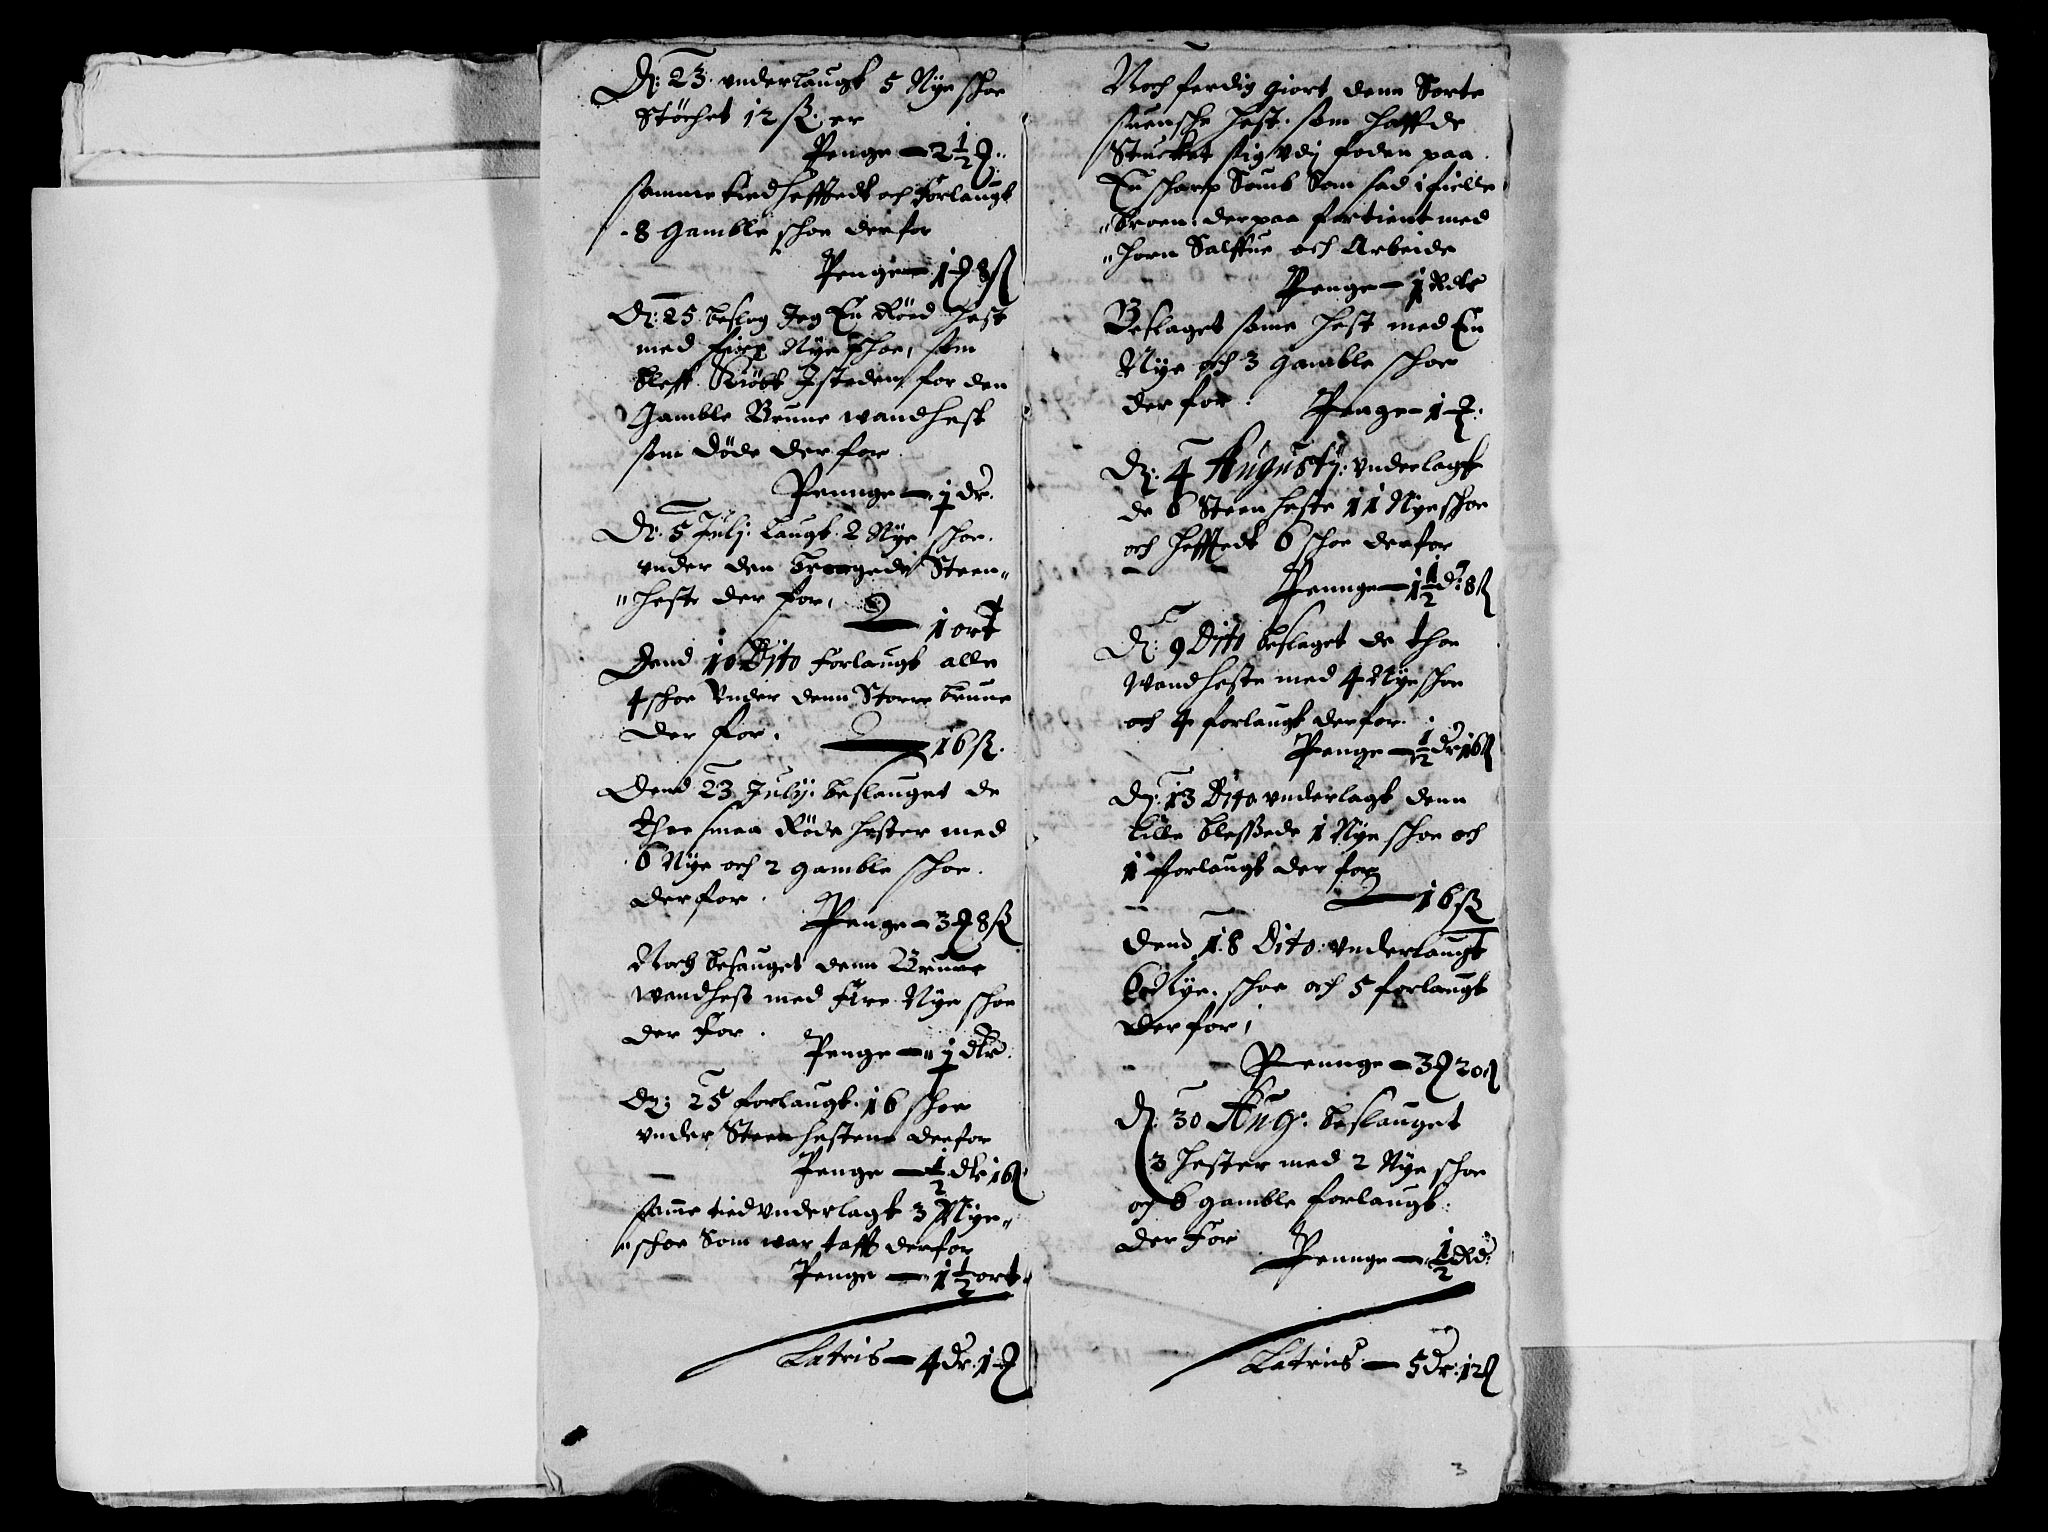 D: 23. vnderlaugt 5 Nye schoe
Stöchet 12 ß. er
Penge — 2 1/2 
samme tied hefftedt och forlaugt
8 Gamble schoe derfor
Penge — 1 8 ß
D: 25 beslog Jeg En Röed hest
med fiorr Nye schoe, som
bleff Kiöbt Jsteden for den
Gamble Brune wandhest
som döde der for
Pennge — 1 dr.
D: 5 Julj: laugt 2 Nye schoe
vnder den Steen„
„heste der for, — 1 ort
Dend 10 Dito forlaugt alle
4 schoe vnder denn Storre brune
der for. — 16 ß.
Dend 23 July: beslauget de
thoe smaa Röde hester med
6 Nye och 2 gamble schoe
derfor.
Penge — 3 8 ß
Noch beslauget denn Brune
wandhest med Fire Nye schoe
der For.
Penge — 1 dlr
D: 25 forlaugt 16 schoe
vnder Steenhestene derfor
Penge — 1/2 dlr 16 ß
samme tied vnderlagt 3 Nye„
„schoe Som war tafft derfor
Penge — 1 1/2 ort
Latris — 4 dr. 1
Noch ferdig giort denn Sorte
suensche hest som haffde
Stucket sig vdj foden paa
En scharp Sömb Som sad i fielle
„broen: derpaa fortient med
„horn Salffue och Arbeide
Penge — 1 Rdlr
Beslaget some hest med En
Nye och 3 Gamble schoe
der for: Penge — 1
D: 4 Augustij: vnderlagt
de 6 Steenheste 11 Nye schoe
och hefftedt 6 schoe derfor
Pennge — 1 1/2 dr 8 ß
D: 9 Dito beslaget de thoe
Wandheste med 4 Nye schoe
och 4 forlaugt derfor.
Penge — 1/2 dr 16 ß
D: 13 Dito vnderlagt denn
lille blessede 1 Nye schoe och
1 forlaugt der for
— 16 ß
Dend 18 Dito: vnderlaugt
6 Nye schoe och 5 forlaugt
der for,
Pennge — 3 20 ß
D: 30 Aug: beslauget
3 hester med 2 Nye schoe
och 6 gamble forlaugt
der For
Pennge — 1/2 dlr
Latrus — 5 dr: 12 ß
3